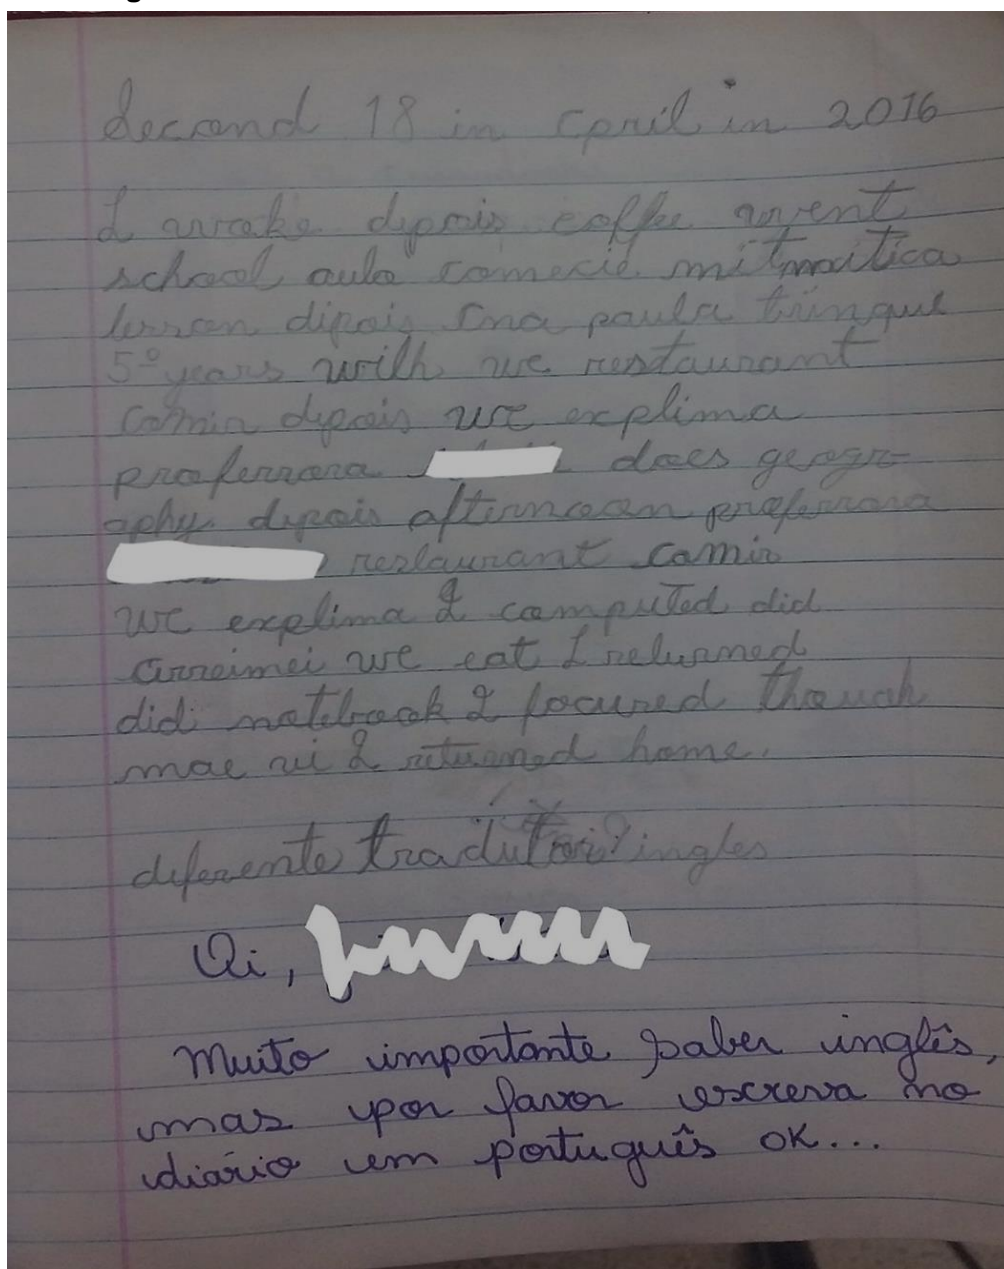 Second 18 in april in 2016
I awake depois coffee went
school aula comecie mitmaitica
lesson dipois Ana paula trinque
5º years with we restaurant
comin depois we explima
proferrora does geogr-
aphy depois afternoon proferrora
restaurant comir
we explima I computed did
arreimei we eat I returned
did notebook I focused though
mae vi I returned home.
diferente ingles
Oi,
Muito importante saber inglês,
mas por favor escreva no
diário em português OK...